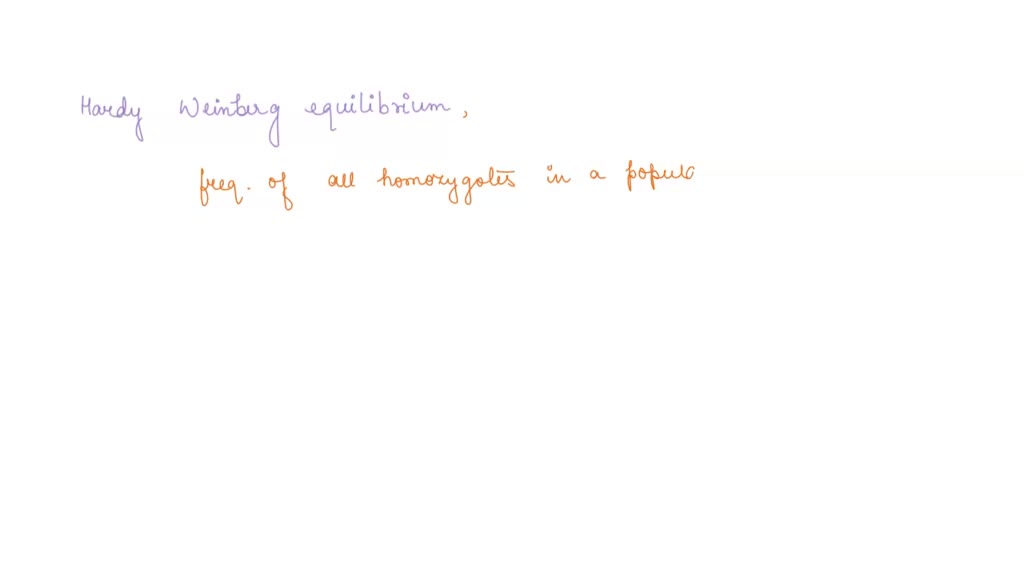 Hardy Weinberg equilibrium,
freq. of all homozygotes in a popul